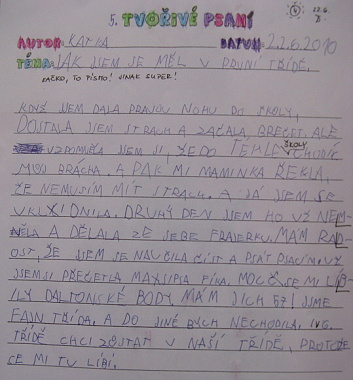 5. TVOŘIVÉ PSANÍ
22.6.
AUTOR: KAČKA DATUM: 22.6.2010
TÉMA: JAK JSEM SE MĚL V PRVNÍ TŘÍDĚ.
KAČKO, TO PÍSMO! JINAK SUPER!
KDYŽ JSEM DALA PRAVOU NOHU DO ŠKOLY,
DOSTALA JSEM STRACH A ZAČALA BREČET. ALE
VZPOMNĚLA JSEM SI, ŽE DO TÉHLE ŠKOLY CHODIL
MŮJ BRÁCHA. A PAK MI MAMINKA ŘEKLA,
ŽE NEMUSÍM MÍT STRACH. A JÁ JSEM SE
UKLIDNILA. DRUHÝ DEN JSEM HO UŽ NEM-
NĚLA A DĚLALA ZE SEBE FRAJERKU. MÁM RAD-
OST, ŽE JSEM SE NAUČILA ČÍST A PSÁT PSACÍM. UŽ
JSEM SI PŘEČETLA MAXIPSA FÍKA. MOC SE MI LÍB-
ILY DALTONSKÉ BODY, MÁM JICH 57! JSME
FAJN TŘÍDA. A DO JINÉ BYCH NECHODILA. I V 6.
TŘÍDĚ CHCI ZŮSTAT V NAŠÍ TŘÍDĚ, PROTOŽE
SE MI TU LÍBÍ.